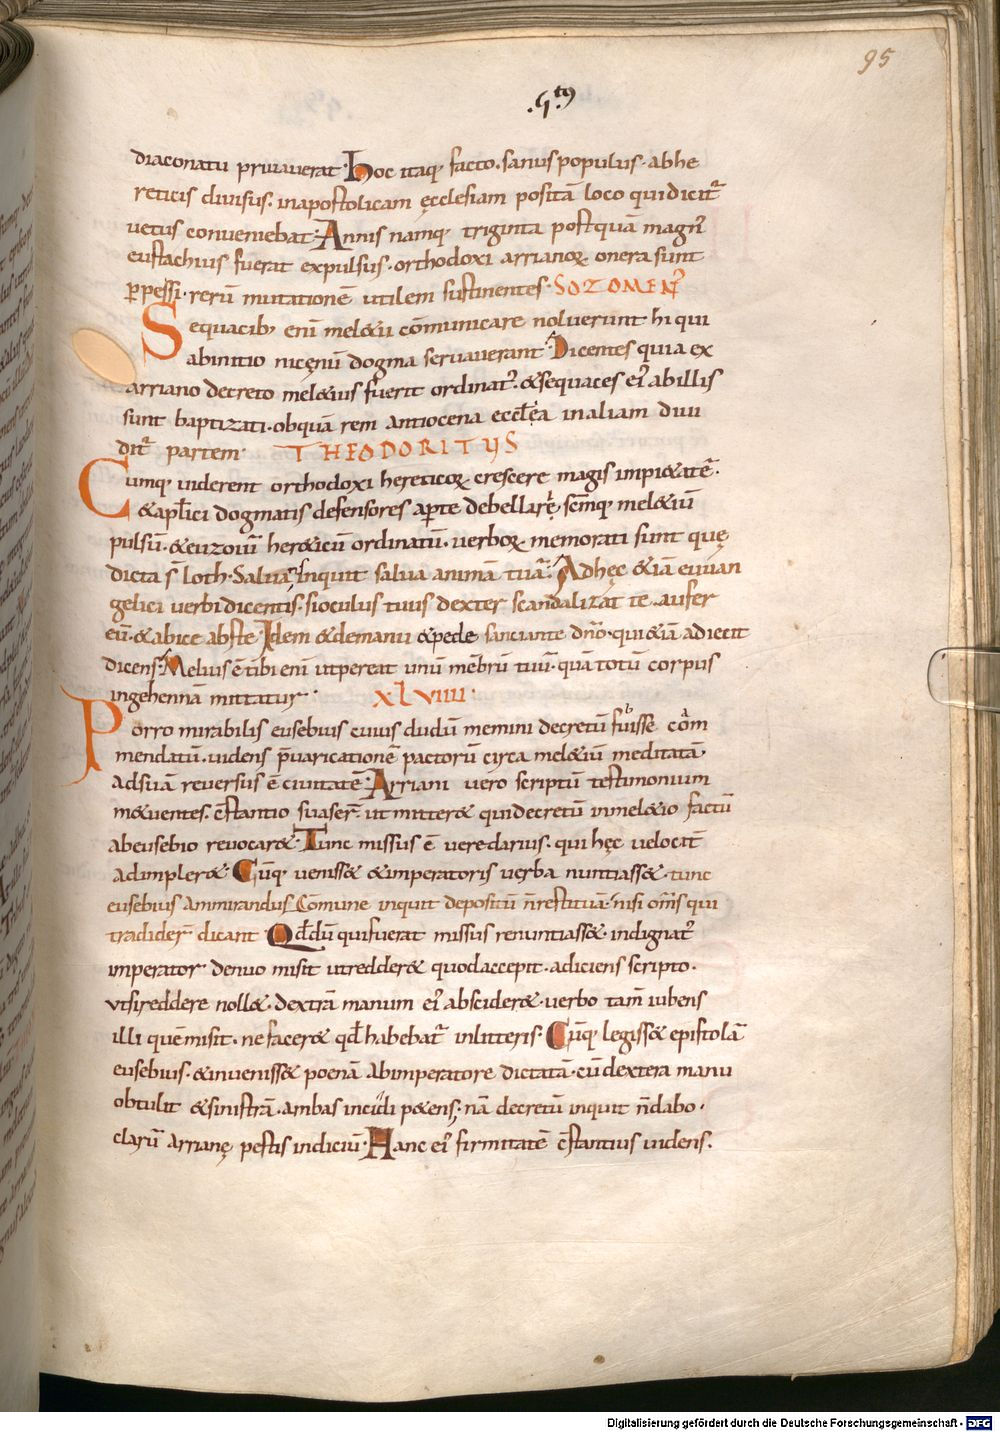 95
.5.t9
diaconatu priuauerat· hoc itaq; facto. sanus populus· abhe
reticis diuisus. inapostolicam ęcclesiam positā loco quidicit᷑
uetus conueniebat· Annis namq; triginta postquā magn᷒
eustachius fuerat expulsus· orthodoxi arrianoꝝ onera sunt
ꝑpessi· rerū mutationē utilem sustinentes· SOZOMEN᷒
Sequacib; eni melecii cōmunicare noluerunt hi qui
abinitio nicęnū dogma seruauerant· Dicentes quia ex
arriano decreto meletius fuerit ordinat᷒· &sequaces ei᷒ abillis
sunt baptizati· obquā rem antiocena eccl̄ęa inaliam diui
dit᷑ partem· THEODORITUS
Cumq; uiderent orthodoxi hereticoꝝ crescere magis impi&atē·
&apl̄ici dogmatis defensores aꝑte debellari· sc̄mq; mel&iū
pulsū· &euzoiū her&icū ordinatū· uerboꝝ memorati sunt quę
dicta s̄ loth· Salua inquit salua animā tuā· Adhęc &iā euuan
gelici uerbi dicentis· sioculus tuus dexter scandalizat te· aufer
eū· &abice abste· Idem &demanu &pede sanciante dn̄o· qui&iā adiecit
dicens· Melius ē tibi eni utpereat unū mēbrū tuū· quā totū corpus
ingehennā mittatur· XLVIIII·
Porro mirabilis eusebius cuius dudū memini decretū fuisse cōm
mendatū· uidens p̄uaricationē pactorū circa mel&iū meditatā·
adsuā reuersus ē ciuitatē· Arriani uero scriptū testimonium
m&uentes· c̄stantio suaser̄· ut mitter& qui decretū inmel&io factū
abeusebio reuocar&· Tunc missus ē ueredarius· qui hęc uelocit̄
adimpler&· Cūq; veniss& &imperatoris uerba nuntiass&· tunc
eusebius ammirandus· Cōmune inquit depositū n̄restituā· nisi om̄s qui
tradider̄ dicant· Qd̄dū quifuerat missus renuntiass&· indignat᷒
imperator· denuo misit utredder& quodaccepit· adiciens scripto·
utsireddere noll&· dextrā manum ei᷒ abscider&· uerbo tam̄ iubens
illi quēmisit· ne facer& qd̄ habebat᷑ inlitteris· Cūq; legiss& epistolā
eusebius· &inueniss& poenā abimperatore dictatā· cū dextera manu
obtulit &sinistrā· ambas incidi p&ens· nā decretū inquit n̄dabo·
clarū arrianę pestis indiciū· Hanc ei᷒ firmitatē c̄stantius uidens·
Digitalisierung gefördert durch die Deutsche Forschungsgemeinschaft - DFG